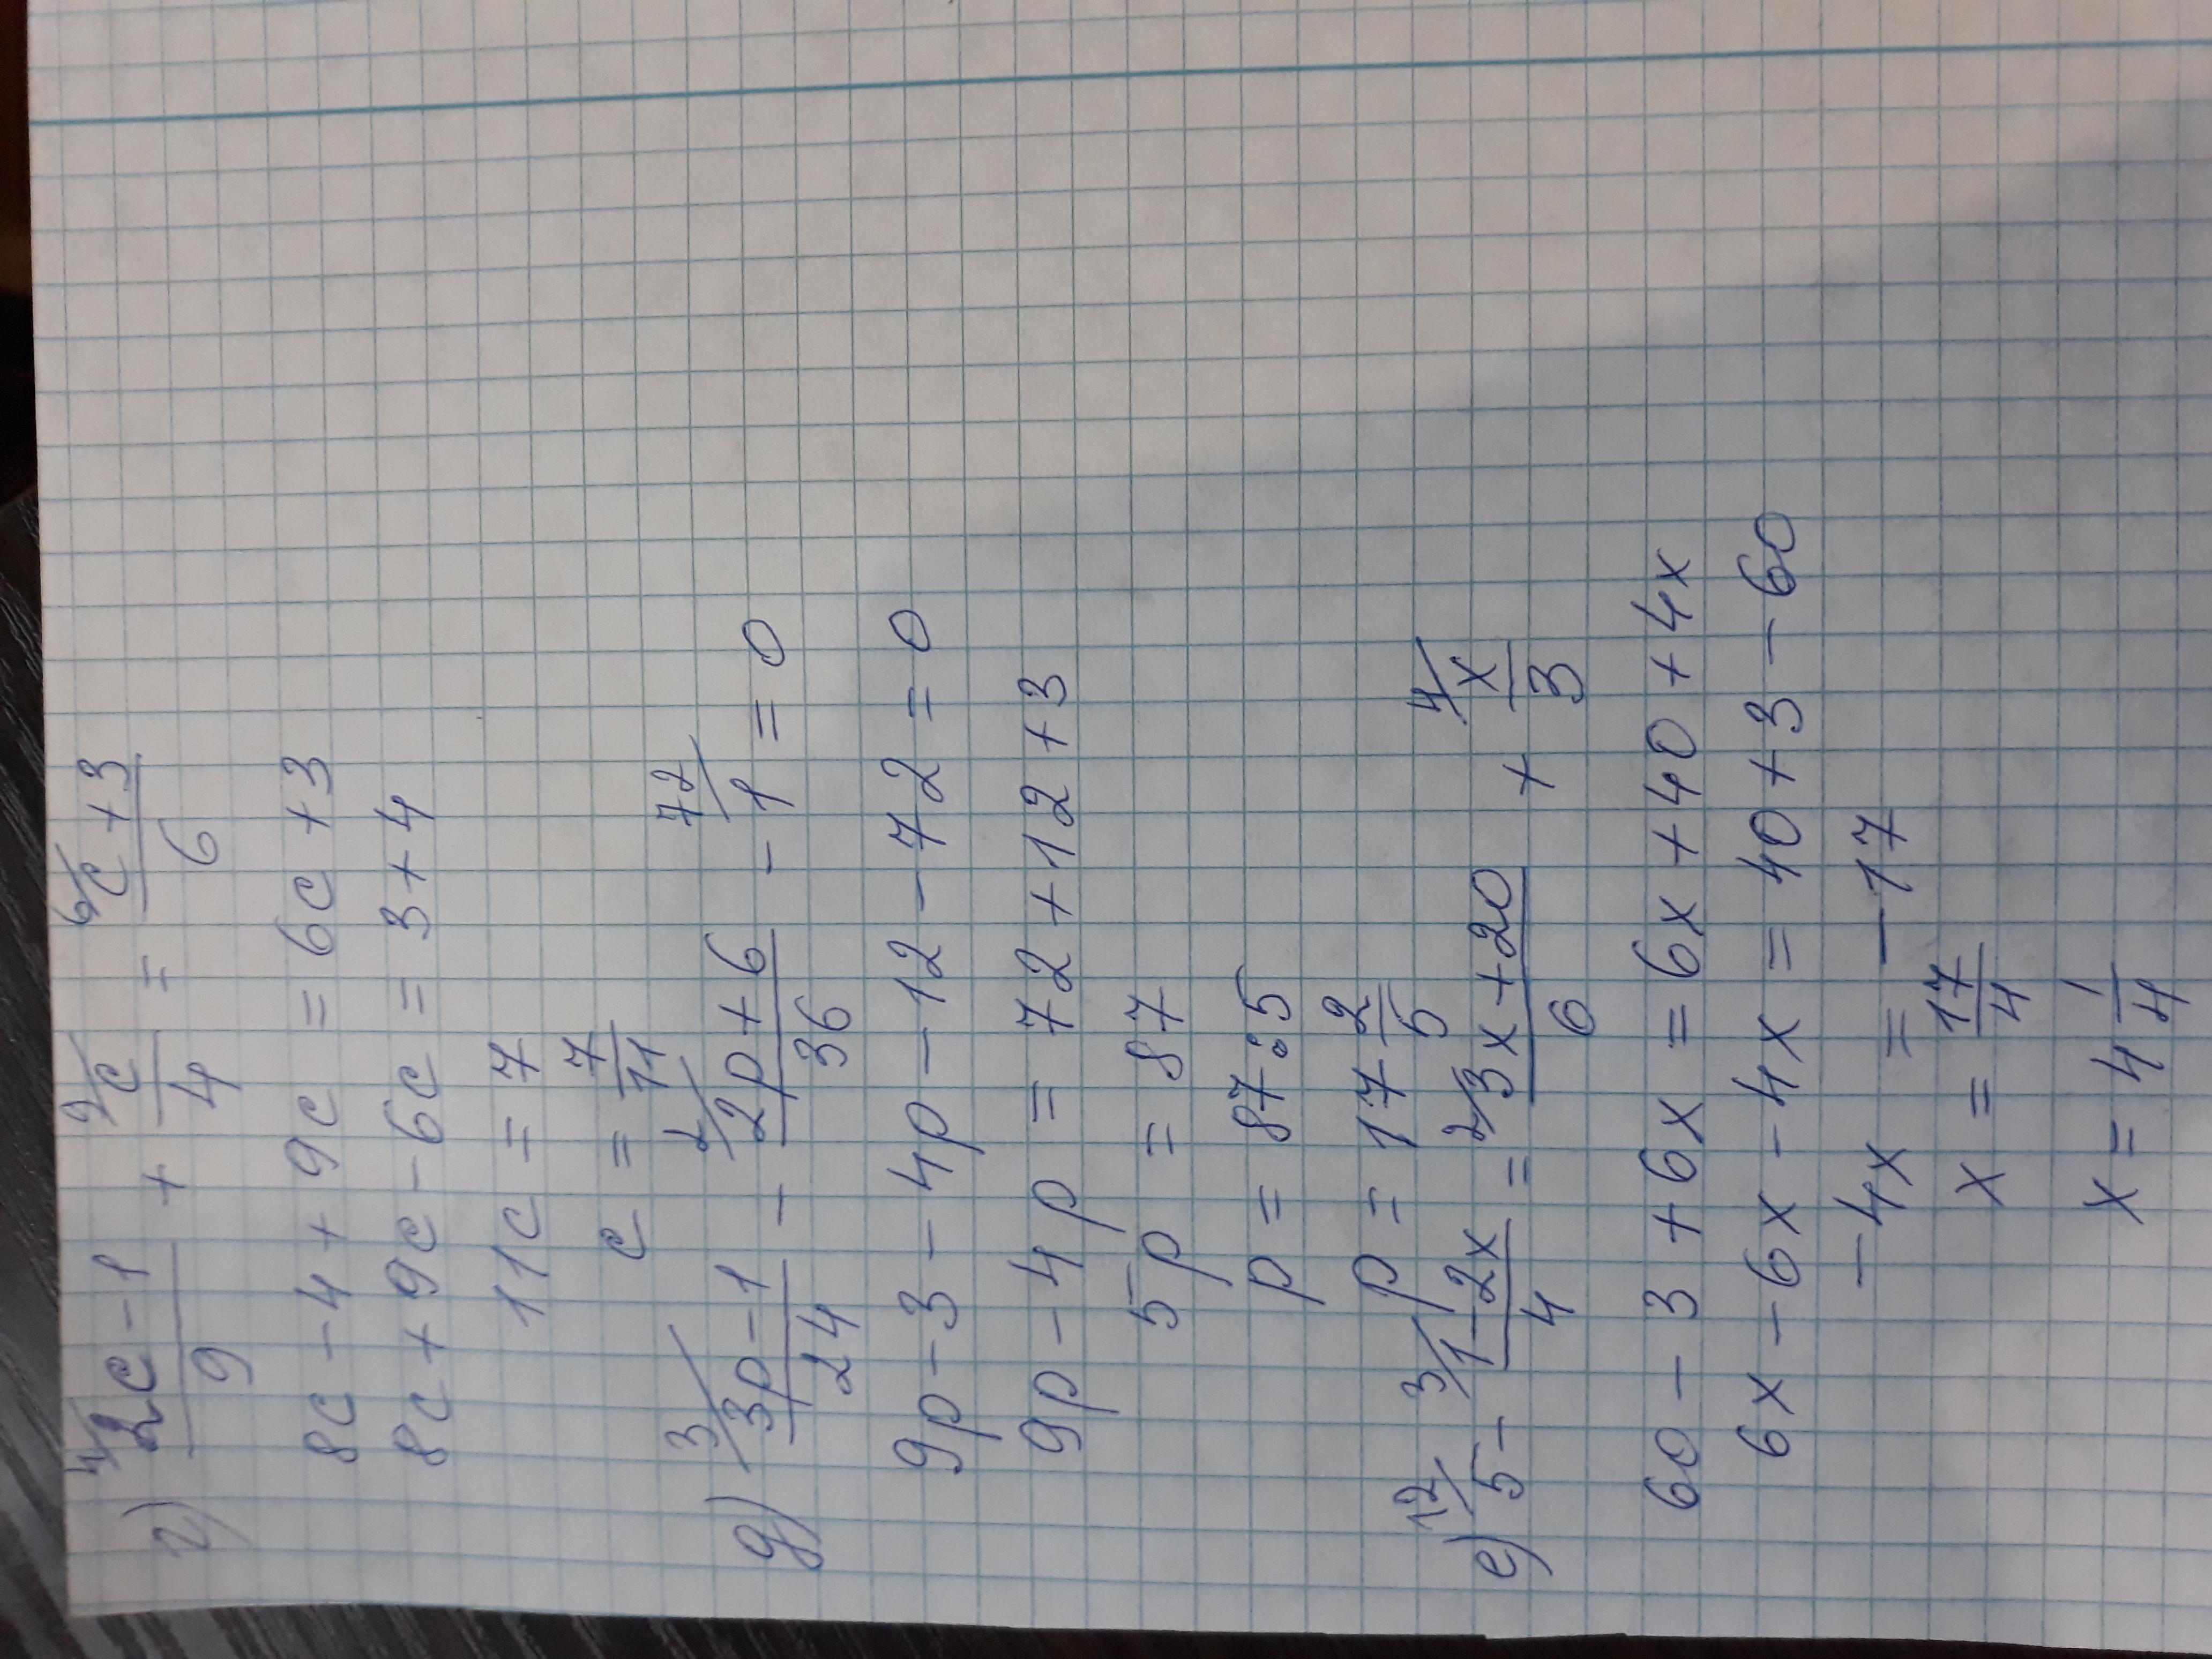 г) 4/ 2c-1/9 + 9/ c/4 = 6/ c+3/6
8c-4+9c=6c+3
8c+9c-6c=3+4
11c=7
c=7/11
д) 3/ 3p-1/24 - 2/ 2p+6/36 - 72/ 1=0
9p-3-4p-12-72=0
9p-4p=72+12+3
5p=87
p=87:5
p=17 2/5
е) 12/ 5- 3/ 1-2x/4 = 2/ 3x+20/6 + 4/ x/3
60-3+6x=6x+40+4x
6x-6x-4x=40+3-60
-4x=-17
x=17/4
x=4 1/4